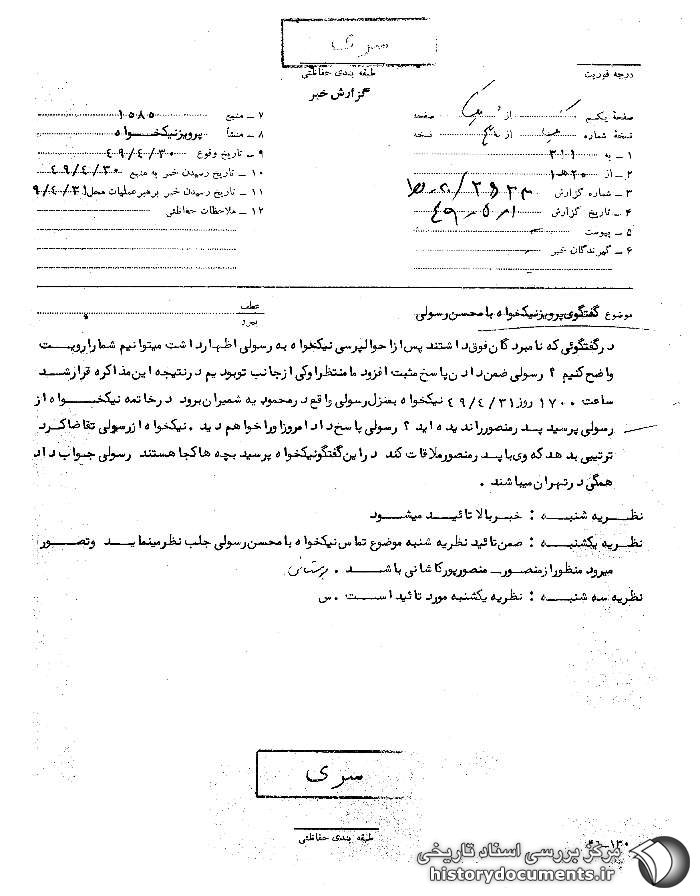 سری
طبقه بندی حفاظتی
درجه فوریت
گزارش خبر
صفحه یکم از یک صفحه
نسخه شماره از نسخه
۱ ـ به ۳۱۱
۲ ـ از ۲۰ هـ ۱
۳ ـ شماره گزارش
۴ ـ تاریخ گزارش ۴۹/۵/۱
۵ ـ پیوست
۶ ـ گیرندگان خبر
۷ ـ منبع ۱۵۸۵
۸ ـ منشأ پرویز نیکخواه
۹ ـ تاریخ وقوع ۴۹/۴/۳۰
۱۰ ـ تاریخ رسیدن خبر به منبع ۴۹/۴/۳۰
۱۱ ـ تاریخ رسیدن خبر برهبر عملیات محل ۹/۴/۳۱
۱۲ ـ ملاحظات حفاظتی
موضوع گفتگوی پرویز نیکخواه با محسن رسولی
عطف
پیرو
در گفتگوئی که نامبردگان فوق داشتند پس از احوالپرسی نیکخواه به رسولی اظهار داشت میتوانیم شما را رویت
واضح کنیم ؟ رسولی ضمن دادن پاسخ مثبت افزود ما منتظر اوکی از جانب تو بودیم در نتیجه این مذاکره قرار شد
ساعت ۱۷۰۰ روز ۴۹/۴/۳۱ نیکخواه بمنزل رسولی واقع در محمودیه شمیران برود در خاتمه نیکخواه از
رسولی پرسید پدر منصور را ندیده اید ؟ رسولی پاسخ داد امروز او را خواهم دید . نیکخواه از رسولی تقاضا کرد
ترتیبی بدهد که وی با پدر منصور ملاقات کند در این گفتگو نیکخواه پرسید بچه ها کجا هستند رسولی جواب داد
همگی در تهران میباشند .
نظریه شنبه : خبر بالا تائید میشود
نظریه یکشنبه : ضمن تائید نظریه شنبه موضوع تماس نیکخواه با محسن رسولی جلب نظر مینماید و تصور
میرود منظور از منصور ـ منصور پورکاشانی باشد .
نظریه سه شنبه : نظریه یکشنبه مورد تائید است . س
سری
طبقه بندی حفاظتی
مرکز بررسی اسناد تاریخی
historydocuments.ir